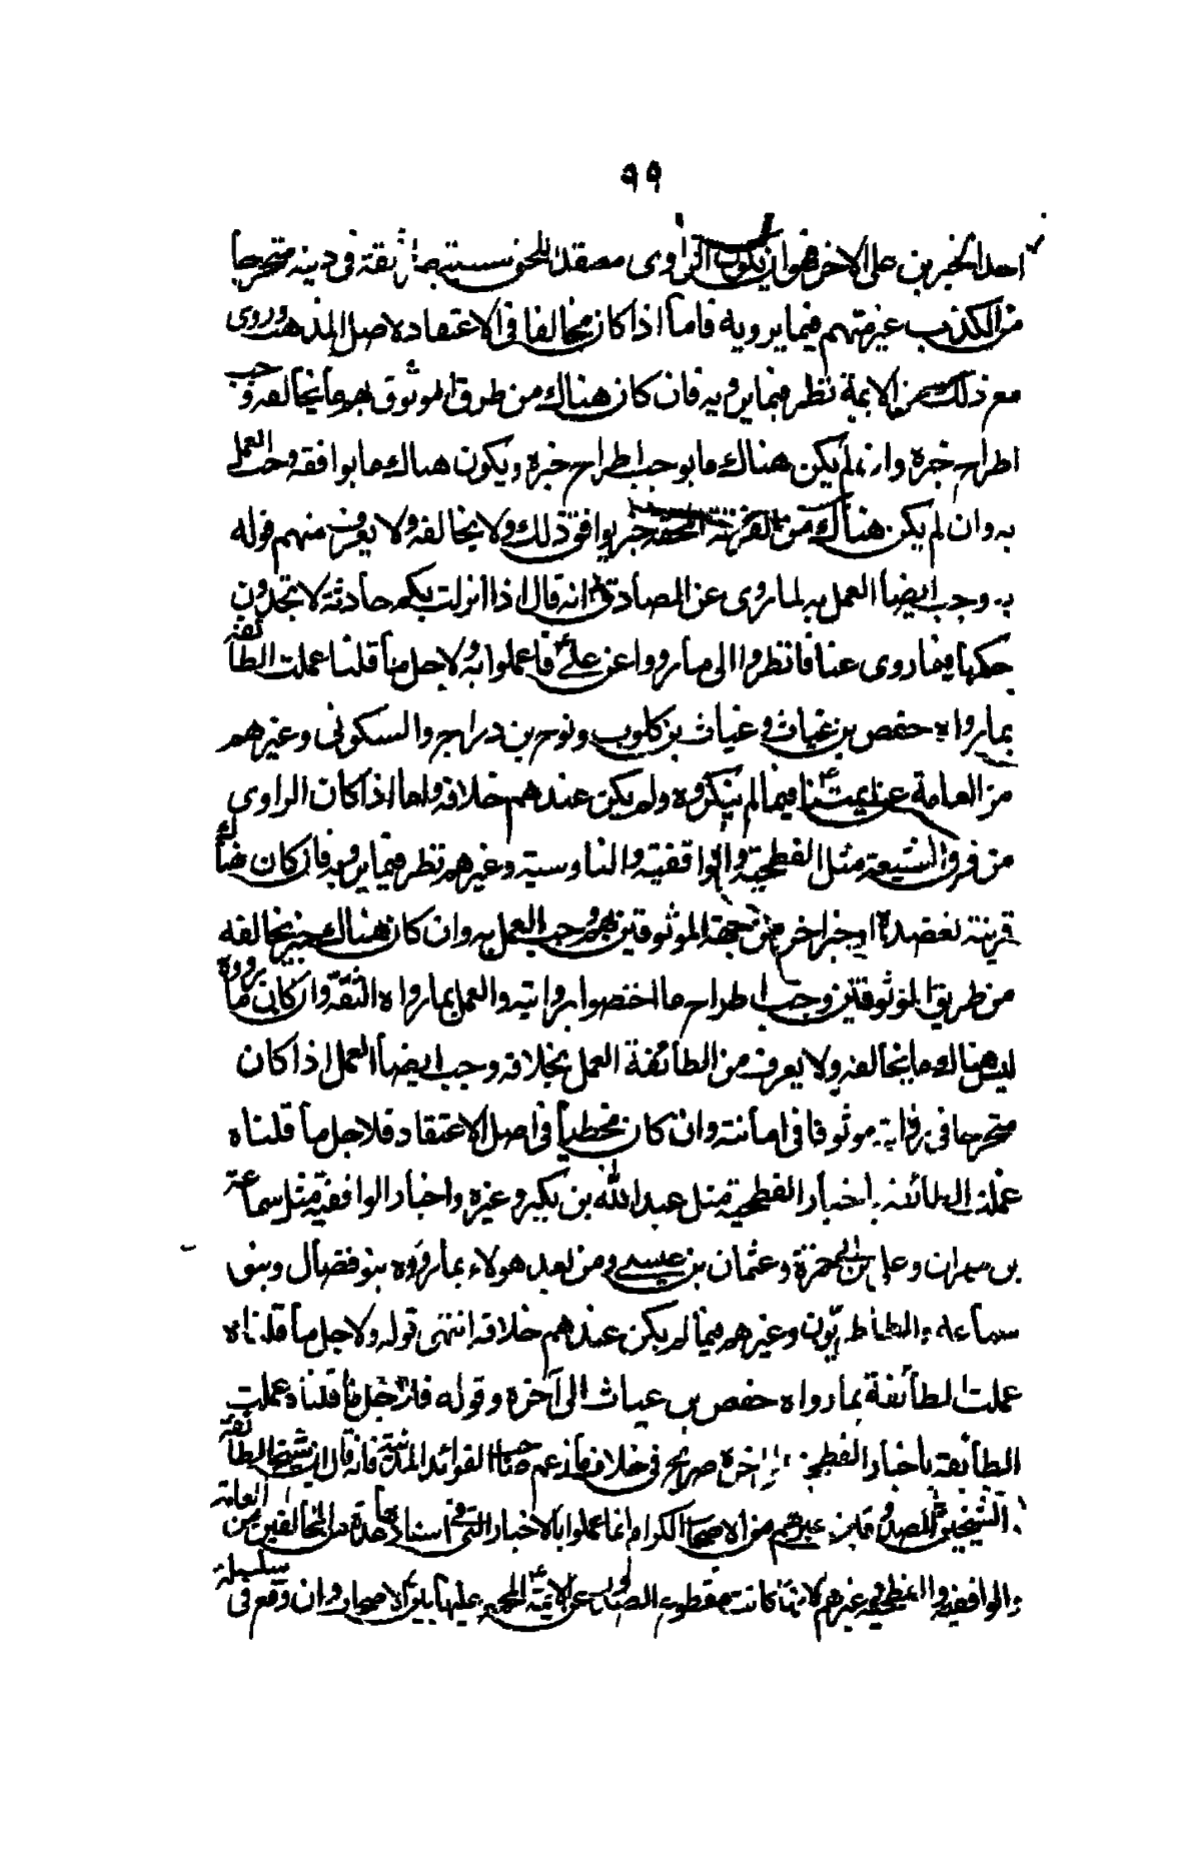 ٩٩
احد الخبرين على الاخر فهو ان يكون الراوى معتقدا للحق مستبصرا ثقة فى دينه متحرجا
من الكذب غير متهم فيما يرويه فاما اذا كان مخالفا فى الاعتقاد لاصل المذهب وروى
مع ذلك عن الائمة نظر فيما يرويه فان كان هناك من طرق الموثوق بهم ما يخالفه وجب
اطراح خبره وان لم يكن هناك ما يوجب اطراح خبره ويكون هناك ما يوافقه وجب العمل
به وان لم يكن هناك من الفرقة المحقة خبر يوافق ذلك ولا يخالفه ولا يعرف منهم قوله
به وجب ايضا العمل به لما روى عن الصادق ع انه قال اذا انزلت بكم حادثة لا تجدون
حكمها فيما روى عنا فانظروا الى ما رووا عن على ع فاعملوا به ولاجل ما قلنا عملت الطائفة
بما رواه حفص بن غياث وغياث بن كلوب ونوح بن دراج والسكونى وغيرهم
من العامة عن ائمتنا ع فيما لم ينكروه ولم يكن عندهم خلافه واما اذا كان الراوى
من فرق الشيعة مثل الفطحية والواقفية والناوسية وغيرهم نظر فيما يرويه فان كان هناك
قرينة تعضده او خبر اخر من جهة الموثوقين بهم وجب العمل به وان كان هناك خبر يخالفه
من طريق الموثوقين وجب اطراح ما اختصوا بروايته والعمل بما رواه الثقة وان كان ما يرووه
ليس هناك ما يخالفه ولا يعرف من الطائفة العمل بخلافه وجب ايضا العمل اذا كان
متحرجا فى روايته موثوقا فى امانته وان كان مخطيا فى اصل الاعتقاد فلاجل ما قلناه
عملت الطائفة باخبار الفطحية مثل عبد الله بن بكير وغيره واخبار الواقفية مثل سماعة
بن مهران وعلى بن ابى حمزة وعثمان بن عيسى ومن بعد هولاء بما رووه بنو فضال وبنو
سماعة والطاطريون وغيرهم فيما لم يكن عندهم خلافه انتهى قوله ولاجل ما قلناه
عملت الطائفة بما رواه حفص بن غياث الى آخره وقوله فلاجل ما قلناه عملت
الطائفة باخبار الفطحية الى اخره صريح فى خلاف ما زعم صاحب الفوائد المدنية فانه قال ان شيخ الطائفة
الشيخين الصدوقين غيرهم من الاصحاب الكرام انما عملوا بالاخبار التى فى اسنادها جماعة من المخالفين من العامة
والواقفية والفطحية وغيرهم لانها كانت مقطوعة الصدور عن الائمة ع المجمع عليها بين الاصحاب وان وقع فى سلسلة